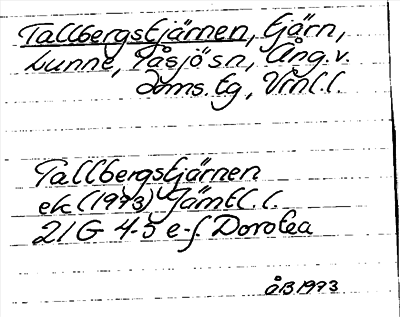 Tallbergstjärnen, tjärn,
Lunne, Tåsjö sn, Ång. v.
doms. tg, Vnl. l.
Tallbergstjärnen
ek (1973) Jämtl. l.
21 G 4-5 e-f Dorotea
ÅB 1973